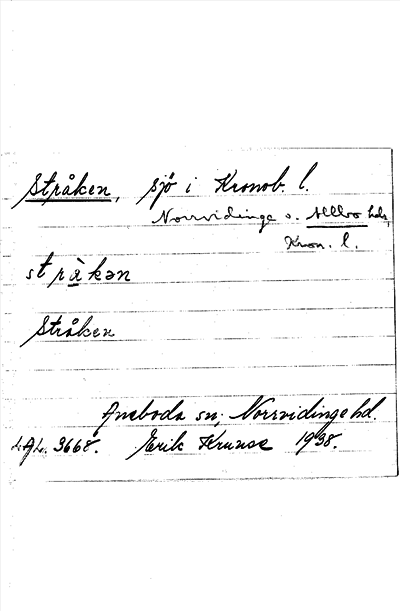 Stråken, sjö i Kronob. l.
Norrvidinge o. Allbo hdr,
Kron. l.
stråkən
Stråken
Aneboda sn, Norrvidinge hd.
LAL. 3668. Erik Kruuse 1938.